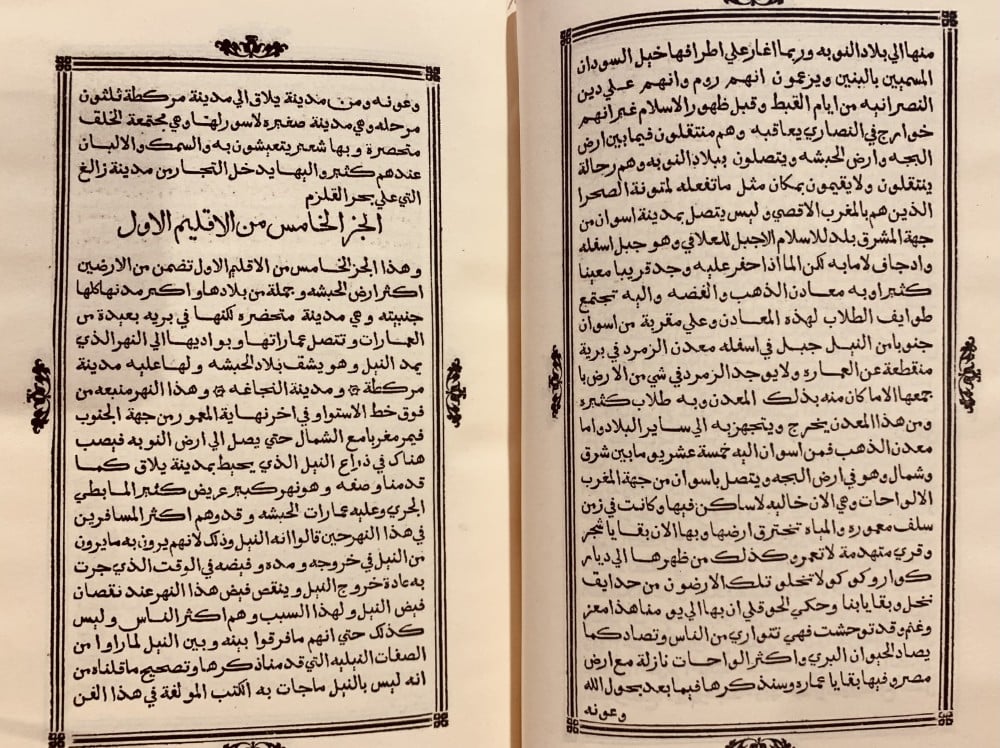 منها الي بلاد النوبه وربما اغار علي اطرافها خيل السودان
المسمين بالبنين ويزعمون انهم روم وانهم علي دين
النصرانيه من ايام القبط وقبل ظهور الاسلام غير انهم
خوارج في النصاري يعاقبه وهم منتقلون فيما بين ارض
البجه وارض الحبشه ويتصلون ببلاد النوبه وهم رحالة
ينتقلون ولا يقيمون بمكان مثل ما تفعله لمتونة الصحرا
الذين هم بالمغرب الاقصي وليس يتصل بمدينة اسوان من
جهة المشرق بلد للاسلام الا جبل العلاقي وهو جبل اسفله
واد جاف لا ما به لكن الما اذا حفر عليه وجد قريبا معينا
كثيرا وبه معادن الذهب والفضه واليه تجتمع
طوايف الطلاب لهذه المعادن وعلي مقربة من اسوان
جنوبا من النيل جبل في اسفله معدن الزمرد في برية
منقطعة عن العماره ولا يوجد الزمرد في شي من الارض با
جمعها الا ما كان منه بذلك المعدن وبه طلاب كثيره
ومن هذا المعدن يخرج ويتجهز به الي ساير البلاد واما
معدن الذهب فمن اسوان اليه خمسة عشر يوما بين شرق
وشمال وهو في ارض البجه ويتصل باسوان من جهة المغرب
الالواحات وهي الان خاليه لا ساكن فيها وكانت في زمن
سلف معموره والمياه تخترق ارضها وبها الان بقايا شجر
وقري متهدمة لا تعمر وكذلك من ظهرها الي ديار
كوار وكوكو لا تخلو تلك الارضون من حدايق
نخل وبقايا بنا وحكي الحوقلي ان بها الي يومنا هذا معز
وغنم وقد توحشت فهي تتواري من الناس وتصاد كما
يصاد الحيوان البري واكثر الواحات نازلة مع ارض
مصر وفيها بقايا عماره وسنذكرها فيما بعد بحول الله
وعونه
وعونه ومن مدينة يلاق الي مدينة مركطة ثلثون
مرحله وهي مدينة صغيره لا سور لها وهي مجتمعة الخلق
متحصرة وبها شعير يتعيشون به والسمك والالبان
عندهم كثير واليها يدخل التجار من مدينة زالغ
التي علي بحر القلزم
الجز الخامس من الاقليم الاول
وهذا الجز الخامس من الاقليم الاول تضمن من الارضين
اكثر ارض الحبشه وجملة من بلادها واكبر مدنها كلها
جنبيته وهي مدينة متحضره لكنها في بريه بعيدة من
العمارات وتتصل عماراتها وبواديها الي النهر الذي
يمد النيل وهو يشق بلاد الحبشه ولها عليه مدينة
مركطة ومدينة النجاغه وهذا النهر منبعه من
فوق خط الاستوا وفي اخر نهاية المعمور من جهة الجنوب
فيمر مغربا مع الشمال حتي يصل الي ارض النوبه فيصب
هناك في ذراع النيل الذي يحيط بمدينة يلاق كما
قدمنا وصفه وهو نهر كبير عريض كثير الما بطي
الجري وعليه عمارات الحبشه وقد وهم اكثر المسافرين
في هذا النهر حين قالوا انه النيل وذلك لانهم يرون به ما يرون
من النيل في خروجه ومده وفيضه في الوقت الذي جرت
به عادة خروج النيل وينقص فيض هذا النهر عند نقصان
فيض النيل ولهذا السبب وهم اكثر الناس وليس
كذلك حتي انهم ما فرقوا بينه وبين النيل لما راوا من
الصفات النيليه التي قدمنا ذكرها وتصحيح ما قلناه من
انه ليس بالنيل ما جات به الكتب المولفة في هذا الفن